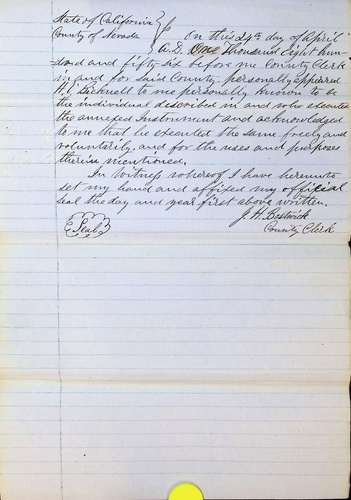 State of California
County of Nevada } ss On this 24th day of April
A. D. One Thousand Eight hun-
dred and fifty six before me County Clerk
in and for said County personally appeared
H. C. Bicknell to me personally known to be
the individual described in and who executed
the annexed Instrument and acknowledged
to me that he executed the same freely and
voluntarily, and for the uses and purposes
therein mentioned.
In Witness whereof I have hereunto
set my hand and affixed my official
seal the day and year first above written.
(Seal) J. H. Bostwick
County Clerk